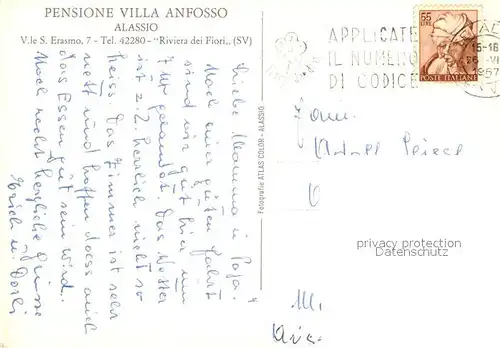 PENSIONE VILLA ANFOSSO
ALASSIO
V.le S. Erasmo, 7 - Tel. 42280 - "Riviera dei Fiori„ (SV)
Liebe Mamma u. Papa.
Nach einer guten Fahrt
sind wir gut hier um
7 Uhr gelandet. Das Wetter
ist z. Z. herrlich nicht so
heiss. Das Zimmer ist sehr
nett und hoffen dass auch
das Essen gut sein wird.
Noch recht herzliche Grüsse
Erich u. Dorli
Fotografie ATLAS COLOR - ALASSIO
APPLICATE
IL NUMERO
DI CODICE
55
LIRE
POSTE ITALIANE
15-16
26 VI
1967
Fam.
privacy protection
VINTAGE POSTCARDS